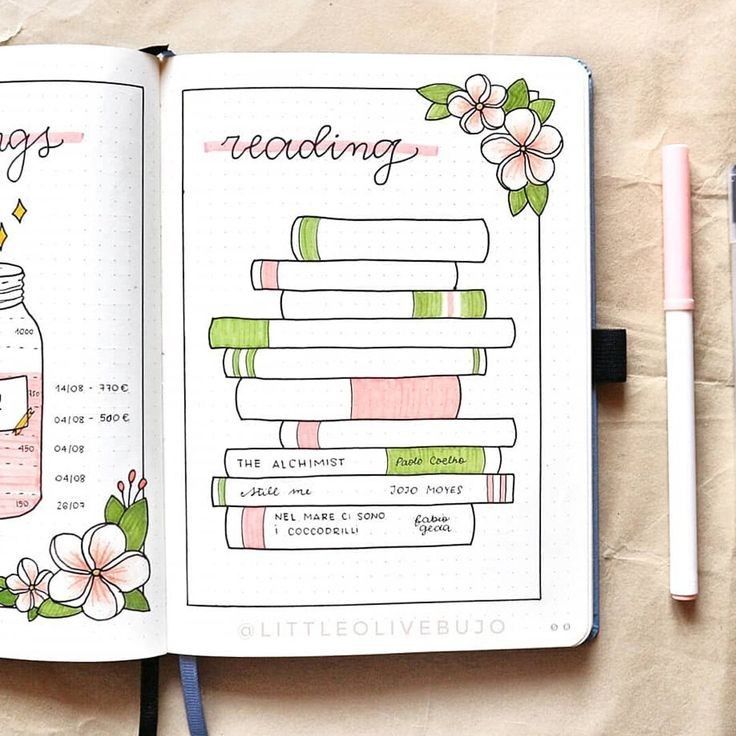 ngs
1000
450
150
14/08 - 770€
04/08 - 500€
04/08
04/08
26/07
reading
THE ALCHIMIST Paolo Coelho
Still me JOJO MOYES
NEL MARE CI SONO fabio
I COCCODRILLI geda
@LITTLEOLIVEBUJO